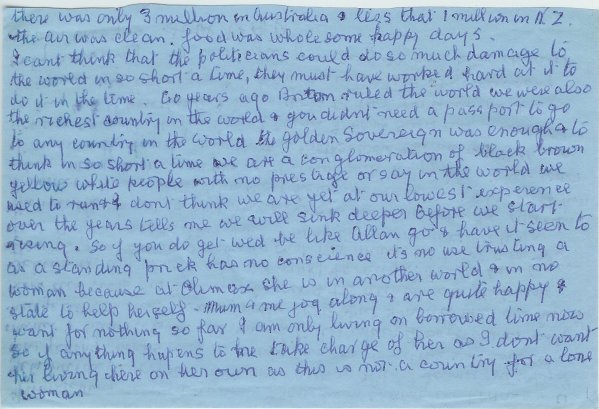 there was only 3 million in Australia & less that 1 million in N Z.
the air was clean. food was wholesome happy days.
I cant think that the politicians could do so much damage to
the world in so short a time, they must have worked hard at it to
do it in the time. 60 years ago Britain ruled the world we were also
the richest country in the world & you didnt need a passport to go
to any country in the world the golden Sovereign was enough & to
think in so short a time we are a conglomeration of black brown
yellow white people with no presage or say in the world we
used to run & I dont think we are yet at our lowest experence
over the years tells me we will sink deeper before we start
rising. So if you do get wed be like Allan go & have it seen to
as a standing prick has no conscience it's no use trusting a
woman because at Climax she is in another world & in no
state to help herself. Mum & me jog along & are quite happy &
want for nothing so far I am only living on borrowed time now
so if anything hapens to me take charge of her as I dont want
her living here on her own as this is not a country for a lone
woman